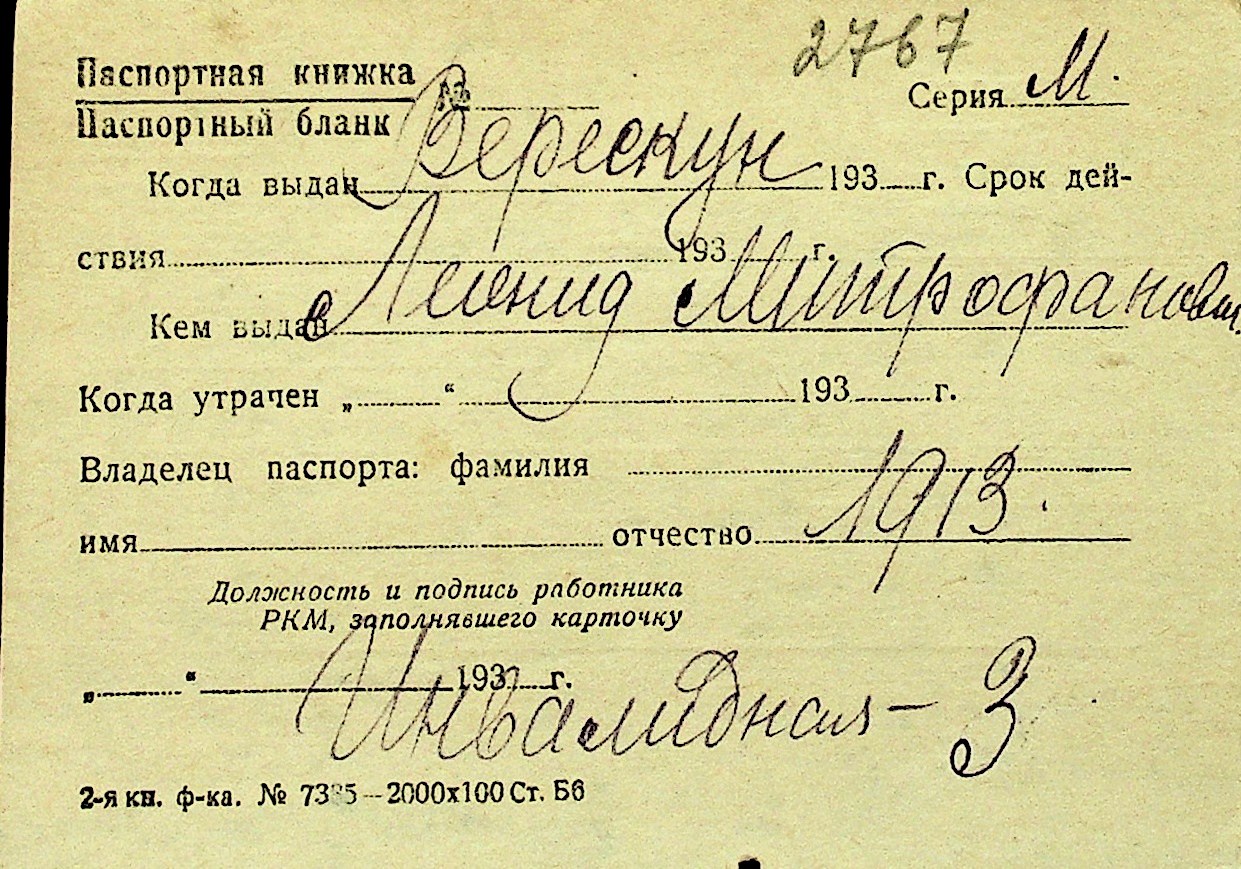 2767
Паспортная книжка
№ Серия М.
Паспортный бланк
Верескун
Когда выдан 193 г. Срок дей-
ствия 193 г.
Леонид Митрофанович
Кем выдан
Когда утрачен „ “ 193 г.
Владелец паспорта: фамилия
1913.
имя отчество
Должность и подпись работника
РКМ, заполнявшего карточку
„ “ 193 г.
Инвалидная – 3
2-я кн. ф-ка. № 7385—2000х100 Ст. Б6